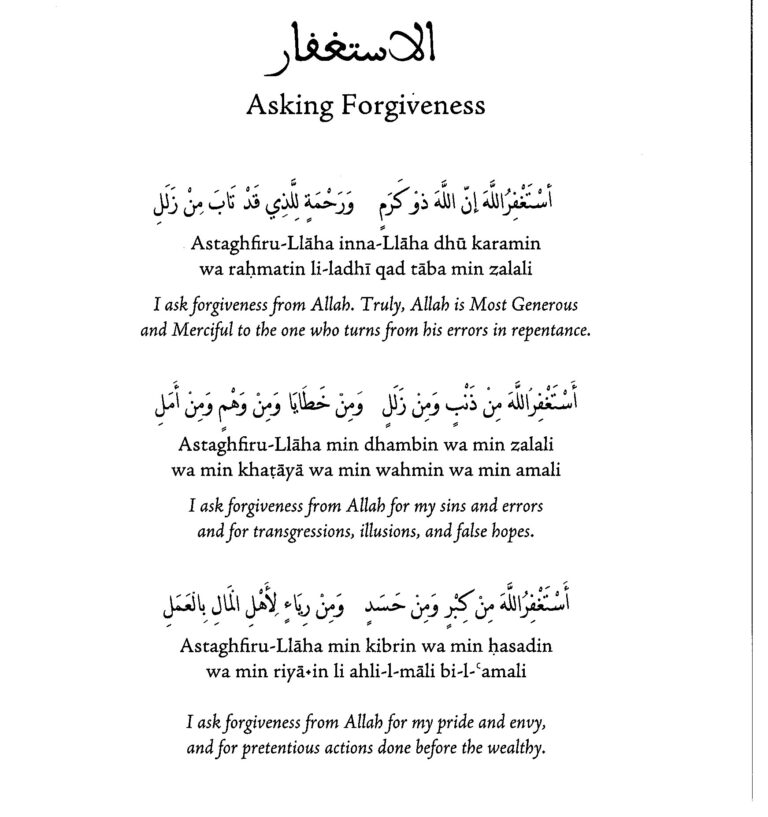 الاستغفار
Asking Forgiveness
أَسْتَغْفِرُاللَّهَ إِنّ اللَّهَ ذوْ كَرَمٍ وَرَحْمَةٍ لِلَّذِي قَدْ تَابَ مِنْ زَلَلِ
Astaghfiru-Llāha inna-Llāha dhū karamin
wa raḥmatin li-ladhī qad tāba min zalali
I ask forgiveness from Allah. Truly, Allah is Most Generous
and Merciful to the one who turns from his errors in repentance.
أَسْتَغْفِرُاللَّهَ مِنْ ذَنْبٍ وَمِنْ زَلَلٍ وَمِنْ خَطَايَا وَمِنْ وَهْمٍ وَمِنْ أَمَلِ
Astaghfiru-Llāha min dhambin wa min zalali
wa min khaṭāyā wa min wahmin wa min amali
I ask forgiveness from Allah for my sins and errors
and for transgressions, illusions, and false hopes.
أَسْتَغْفِرُاللَّهَ مِنْ كِبْرٍ وَمِنْ حَسَدٍ وَمِنْ رِيَاءٍ لِأَهْلِ الْمَالِ بِالْعَمَلِ
Astaghfiru-Llāha min kibrin wa min ḥasadin
wa min riyā•in li ahli-l-māli bi-l-ʿamali
I ask forgiveness from Allah for my pride and envy,
and for pretentious actions done before the wealthy.